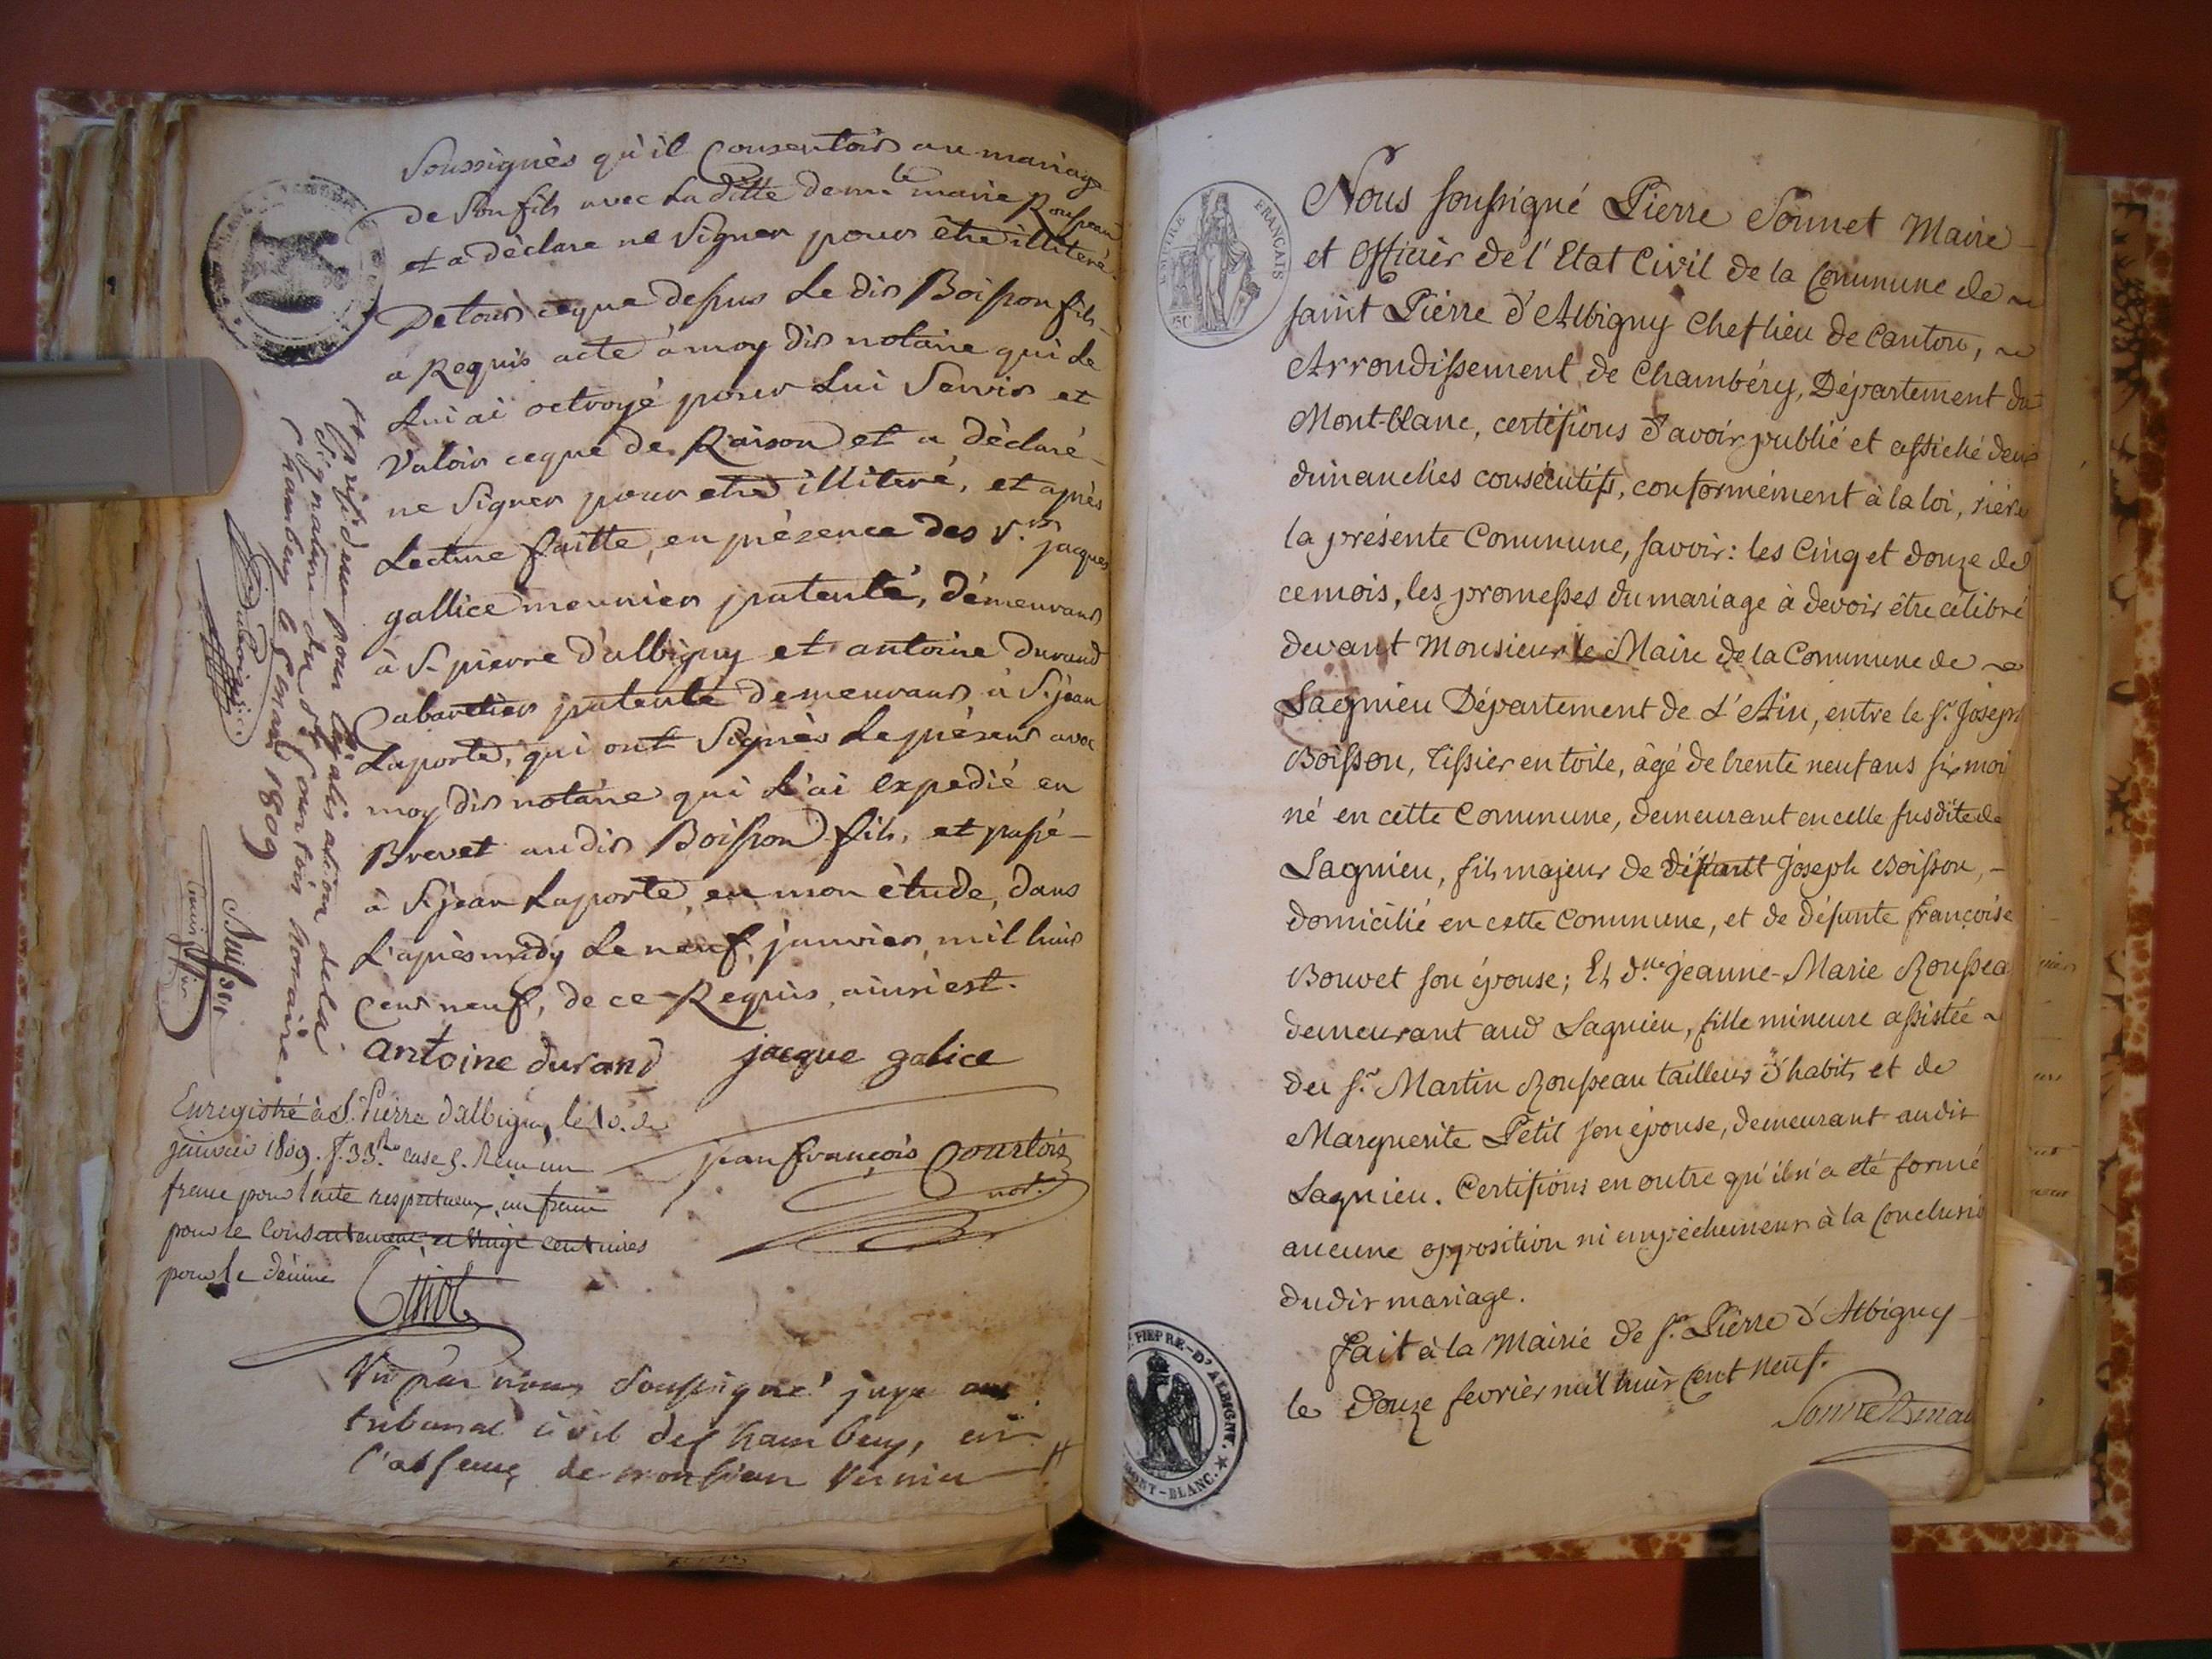 Soussignès qu'il Consentois au mariage
de Son fils avec La ditte dem.le marie Rousseau
et a dèclare ne Signer pour être illiteré.
De tous ceque dessus Le dis Boisson fils
à Requis acte à moy dis notaire qui le
Lui ai octroyé pour Lui Servir et
Valoir ceque de Raison et a dèclaré
ne Signer pour etre illiteré, et après
Lecture faitte, en présence des s.rs jacques
gallice meunier patenté, demeurans
à S. pierre d'albigny et antoine durand
Cabaretier patenté demeurans à S. jean
Laporte, qui ont Signès Le présens avec
moy dis notaire qui L'ai expedié en
Brevet audis Boisson fils, et passé
à S. jean Laporte, en mon ètude, dans
L'après midy Le neuf janvier mil huis
Cens neuf, de ce Requis, ainsi est.
antoine durand jacque galice
Enregistré à S. Pierre d'albigny le 10. de
janvier 1809. f. 33. case 5. Reçu un
franc pour l'acte respectueux, un franc
pour le Consentement et vingt centimes
pour le décime
jean françois Courtois
not.
Vu par nous Soussigné juge au
tribunal civil de Chambery, en
l'absence de monsieur
president pour légalisation de la
Signature du Sr Courtois notaire.
Chambery le mars 1809
EMPIRE FRANÇAIS
Nous soussigné Pierre Sonnet Maire
et Officier de l'Etat Civil de la Commune de
saint Pierre d'Albigny Chef lieu de Canton,
Arrondissement de Chambéry, Département du
Mont-blanc, certifions d'avoir publié et affiché deux
dimanches consécutifs, conformément à la loi, rière
la présente Commune, savoir: les Cinq et douze de
ce mois, les promesses du mariage à devoir être célibré
devant Monsieur le Maire de la Commune de
Lagnieu Département de L'Ain, entre le Sr. Joseph
Boisson, Tissier en toile, âgé de trente neuf ans six moi
né en cette Commune, demeurant en celle susdite de
Lagnieu, fils majeur de défunt Joseph Boisson,
domicilié en cette Commune, et de défunte françoise
Bouvet son épouse; Et d.lle Jeanne-Marie Roussea
demeurant aud Lagnieu, fille mineure assistée
du Sr. Martin Rousseau tailleur d'habits et de
Marguerite Petit son épouse, demeurant audit
Lagnieu. Certifions en outre qu'il n'a été formé
aucune opposition ni empêchemens à la Conclusio
dudit mariage.
fait à la Mairie de St. Pierre d'Albigny
le douze fevrier mil huit Cent neuf.
Sonnet
PIERRE-D'ALBIGNY.
MONT-BLANC.